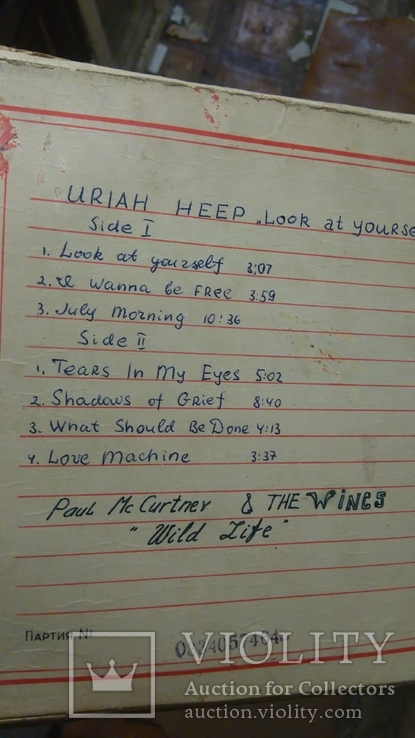 URIAH HEEP „Look at yourse
Side I
1. Look at yourself 3;07
2. I wanna be FRee 3.59
3. July morning 10:36
Side II
1. Tears In My Eyes 5:02
2. Shadows of Grief 8:40
3. What Should Be Done 4:13
4. Love Machine 3:37
Paul Mc Curtney & THE WINGS
"Wild Life"
Партия №
VIOLITY
Auction for Collectors
auction.violity.com